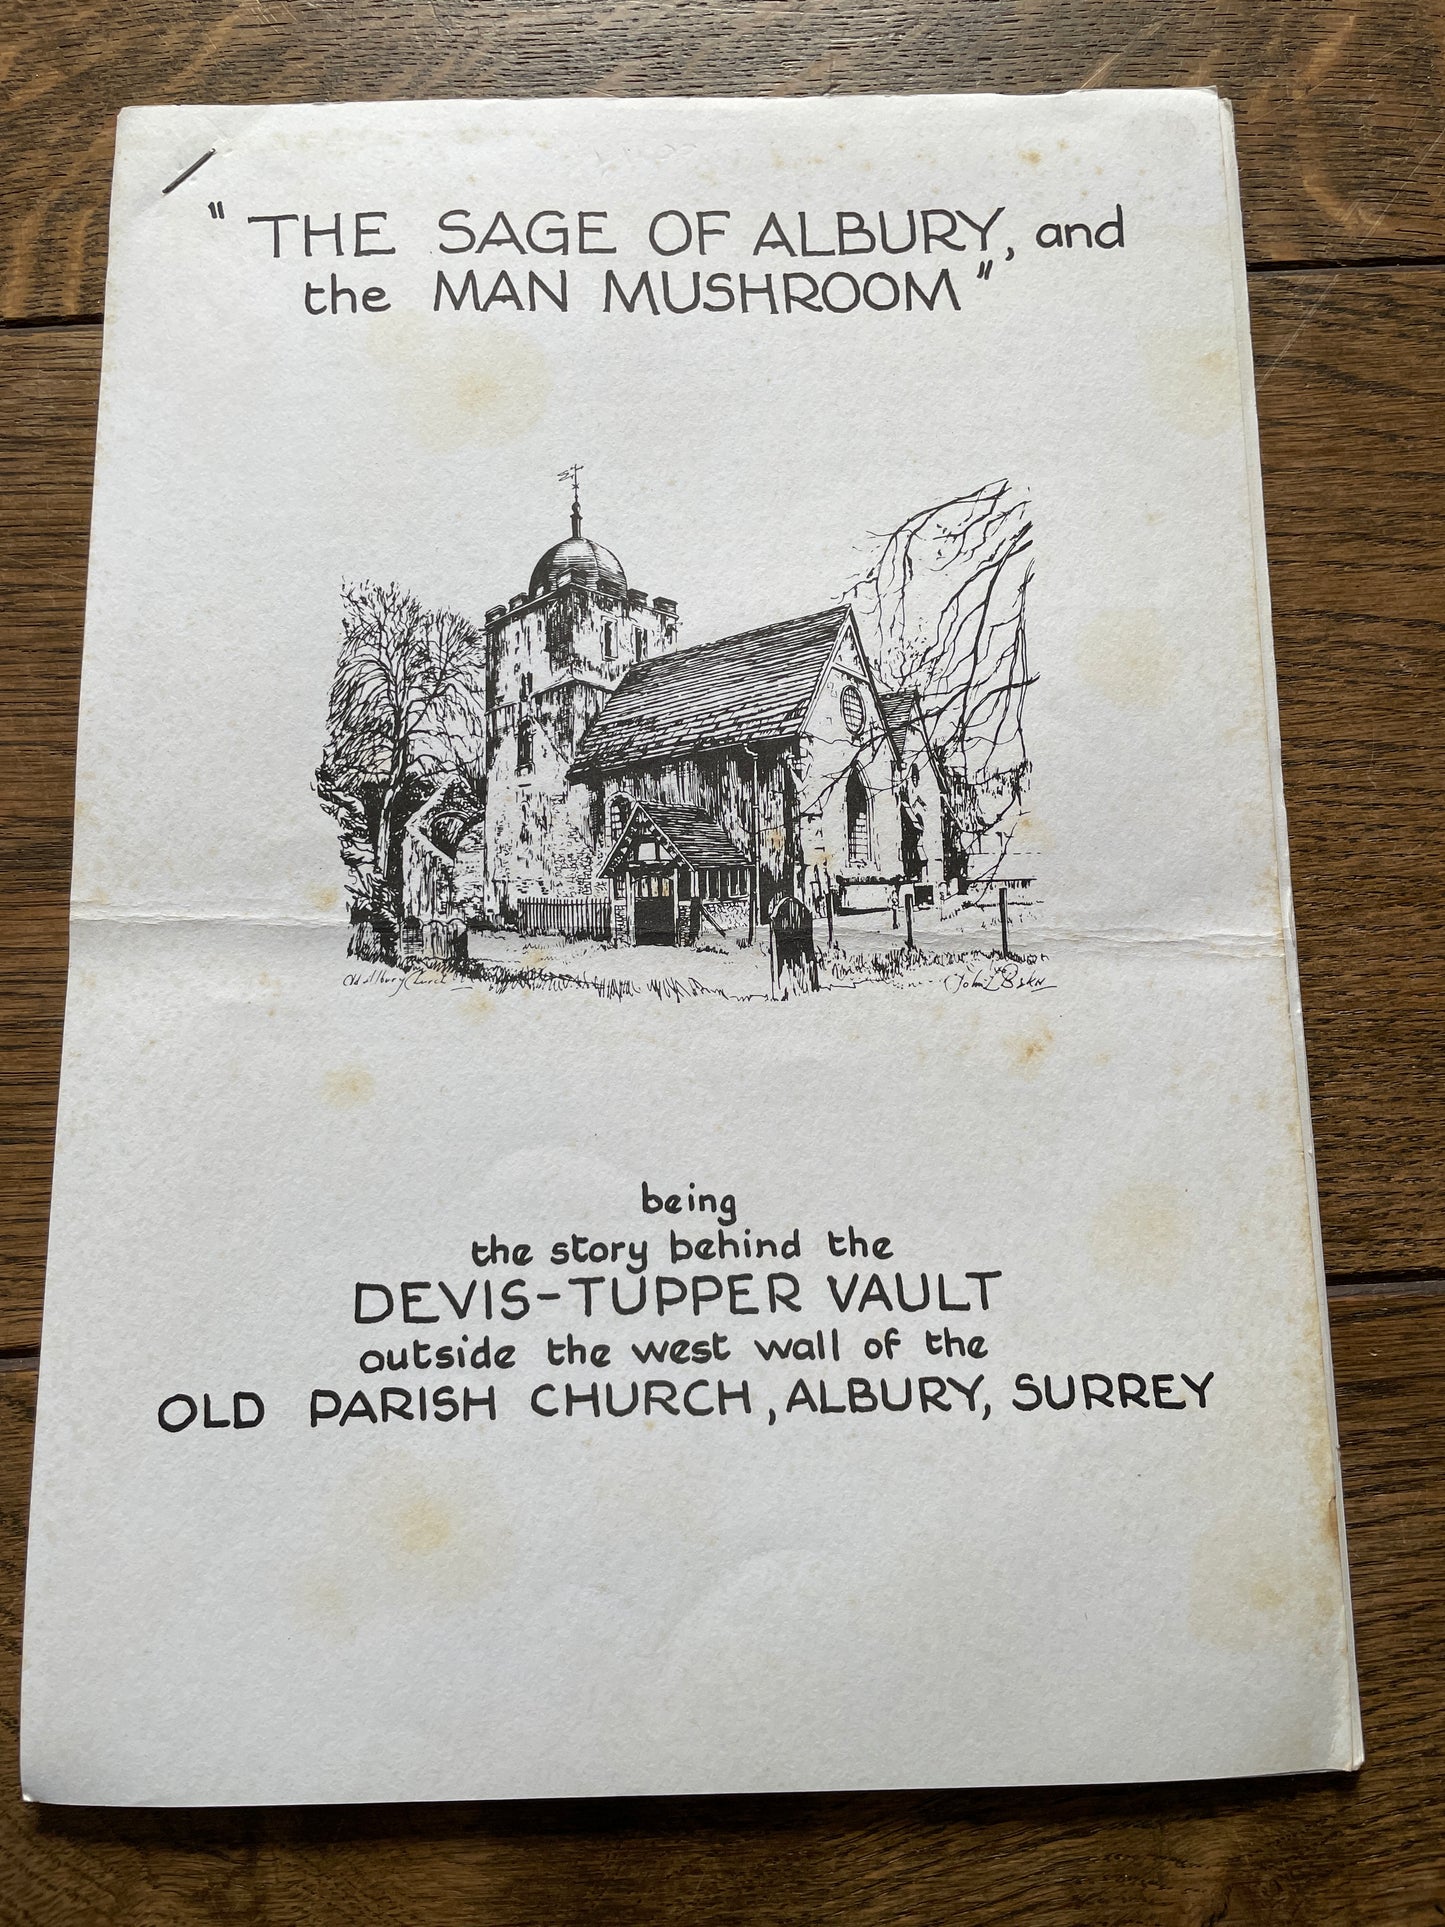 " THE SAGE OF ALBURY, and
the MAN MUSHROOM "
Old Albury Church
being
the story behind the
DEVIS-TUPPER VAULT
outside the west wall of the
OLD PARISH CHURCH, ALBURY, SURREY